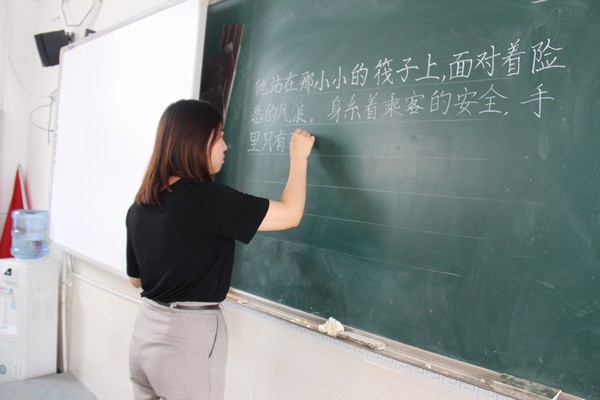 他站在那小小的筏子上，面对着险
恶的风浪，身系着乘客的安全，手
里只有